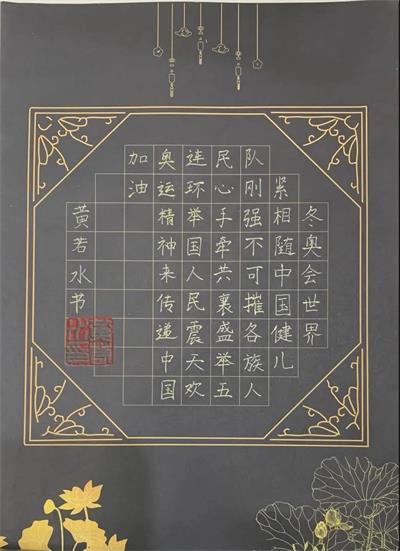 冬奥会世界
紧相随中国健儿
队刚强不可摧各族人
民心手牵共襄盛举五
连环举国人民震天欢
奥运精神来传递中国
加油
黄若水书